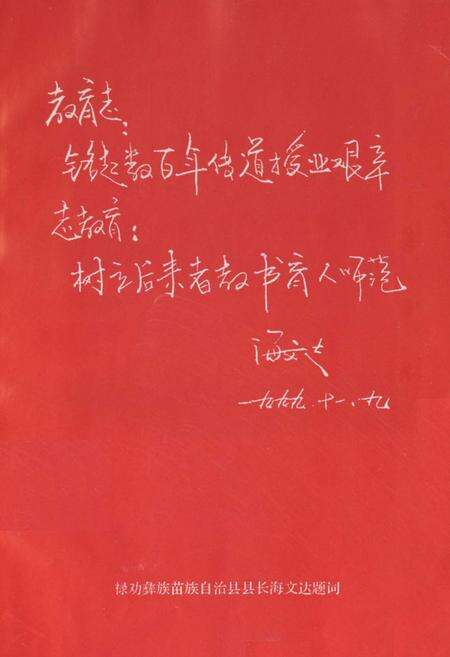 教育志：
铭记数百年传道授业艰辛
志教育：
树立后来者教书育人师范
海文达
一九九九.十一.九
禄劝彝族苗族自治县县长海文达题词